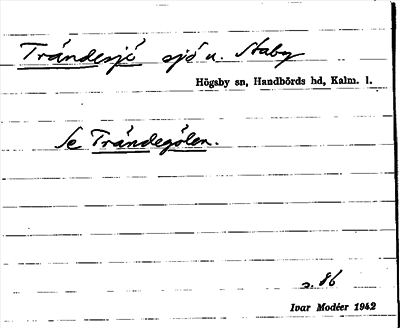 Trändesjö sjö u. Staby
Högsby sn, Handbörds hd, Kalm. l.
Se Trändegölen.
s. 86
Ivar Modéer 1942